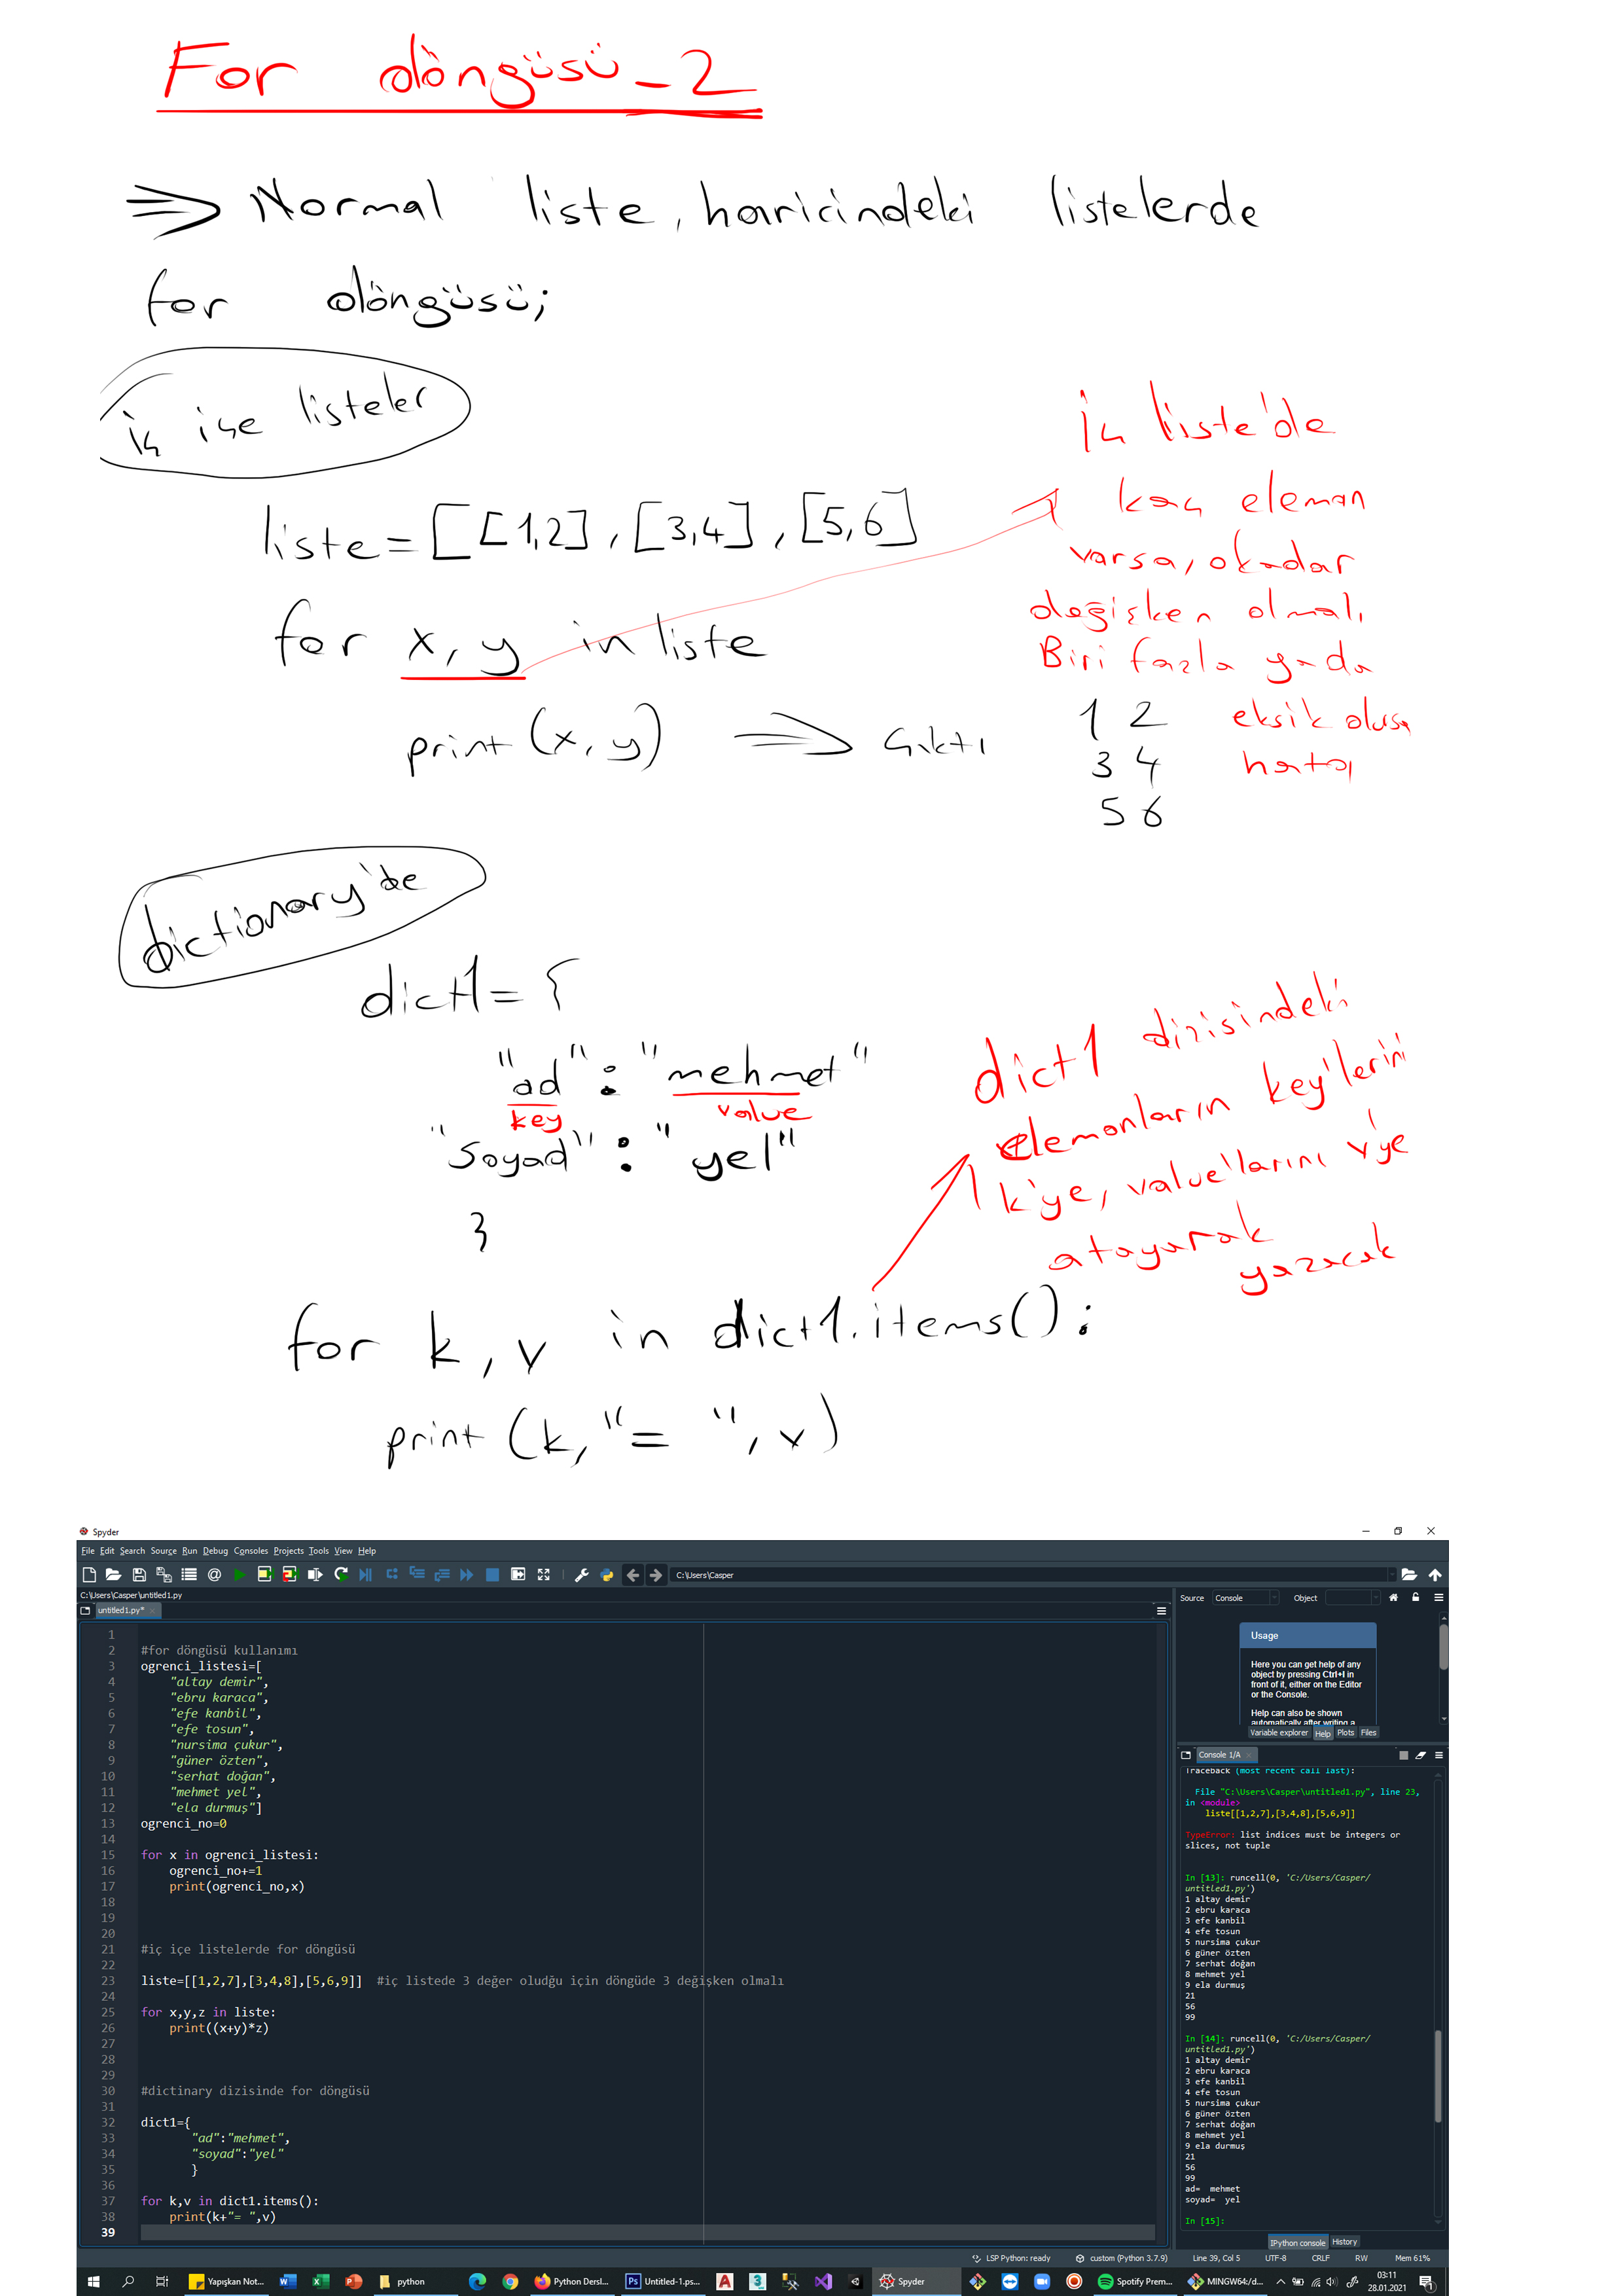 For döngüsü-2
=> Normal liste, haricindeki listelerde
for döngüsü;
iç içe listeler
liste=[[1,2],[3,4],[5,6]
for x,y in liste
print(x,y) => Çıktı
1 2
3 4
5 6
İç liste'de
kaç eleman
varsa, okadar
değişken olmalı
Biri fazla yada
eksik olursa
hata
dictionary'de
dict1={
"ad":"mehmet"
key value
"soyad":"yel"
}
dict1 dizisindeki
elemanların key'lerini
k'ye, value'larını v'ye
atayarak
yazacak
for k,v in dict1.items():
print(k,"= ",v)
Spyder
File Edit Search Source Run Debug Consoles Projects Tools View Help
C:\Users\Casper
C:\Users\Casper\untitled1.py
untitled1.py*
1
2 #for döngüsü kullanımı
3 ogrenci_listesi=[
4 "altay demir",
5 "ebru karaca",
6 "efe kanbil",
7 "efe tosun",
8 "nursima çukur",
9 "güner özten",
10 "serhat doğan",
11 "mehmet yel",
12 "ela durmuş"]
13 ogrenci_no=0
14
15 for x in ogrenci_listesi:
16 ogrenci_no+=1
17 print(ogrenci_no,x)
18
19
20
21 #iç içe listelerde for döngüsü
22
23 liste=[[1,2,7],[3,4,8],[5,6,9]] #iç listede 3 değer oludğu için döngüde 3 değişken olmalı
24
25 for x,y,z in liste:
26 print((x+y)*z)
27
28
29
30 #dictinary dizisinde for döngüsü
31
32 dict1={
33 "ad":"mehmet",
34 "soyad":"yel"
35 }
36
37 for k,v in dict1.items():
38 print(k+"= ",v)
39
Source Console Object
Usage
Here you can get help of any
object by pressing Ctrl+I in
front of it, either on the Editor
or the Console.
Help can also be shown
automatically after writing a
Variable explorer Help Plots Files
Console 1/A
Traceback (most recent call last):
File "C:\Users\Casper\untitled1.py", line 23,
in <module>
liste[[1,2,7],[3,4,8],[5,6,9]]
TypeError: list indices must be integers or
slices, not tuple
In [13]: runcell(0, 'C:/Users/Casper/
untitled1.py')
1 altay demir
2 ebru karaca
3 efe kanbil
4 efe tosun
5 nursima çukur
6 güner özten
7 serhat doğan
8 mehmet yel
9 ela durmuş
21
56
99
In [14]: runcell(0, 'C:/Users/Casper/
untitled1.py')
1 altay demir
2 ebru karaca
3 efe kanbil
4 efe tosun
5 nursima çukur
6 güner özten
7 serhat doğan
8 mehmet yel
9 ela durmuş
21
56
99
ad= mehmet
soyad= yel
In [15]:
IPython console History
LSP Python: ready custom (Python 3.7.9) Line 39, Col 5 UTF-8 CRLF RW Mem 61%
Yapışkan Not... python Python Dersl... Untitled-1.ps... Spyder Spotify Prem... MINGW64:/d... 03:11
28.01.2021